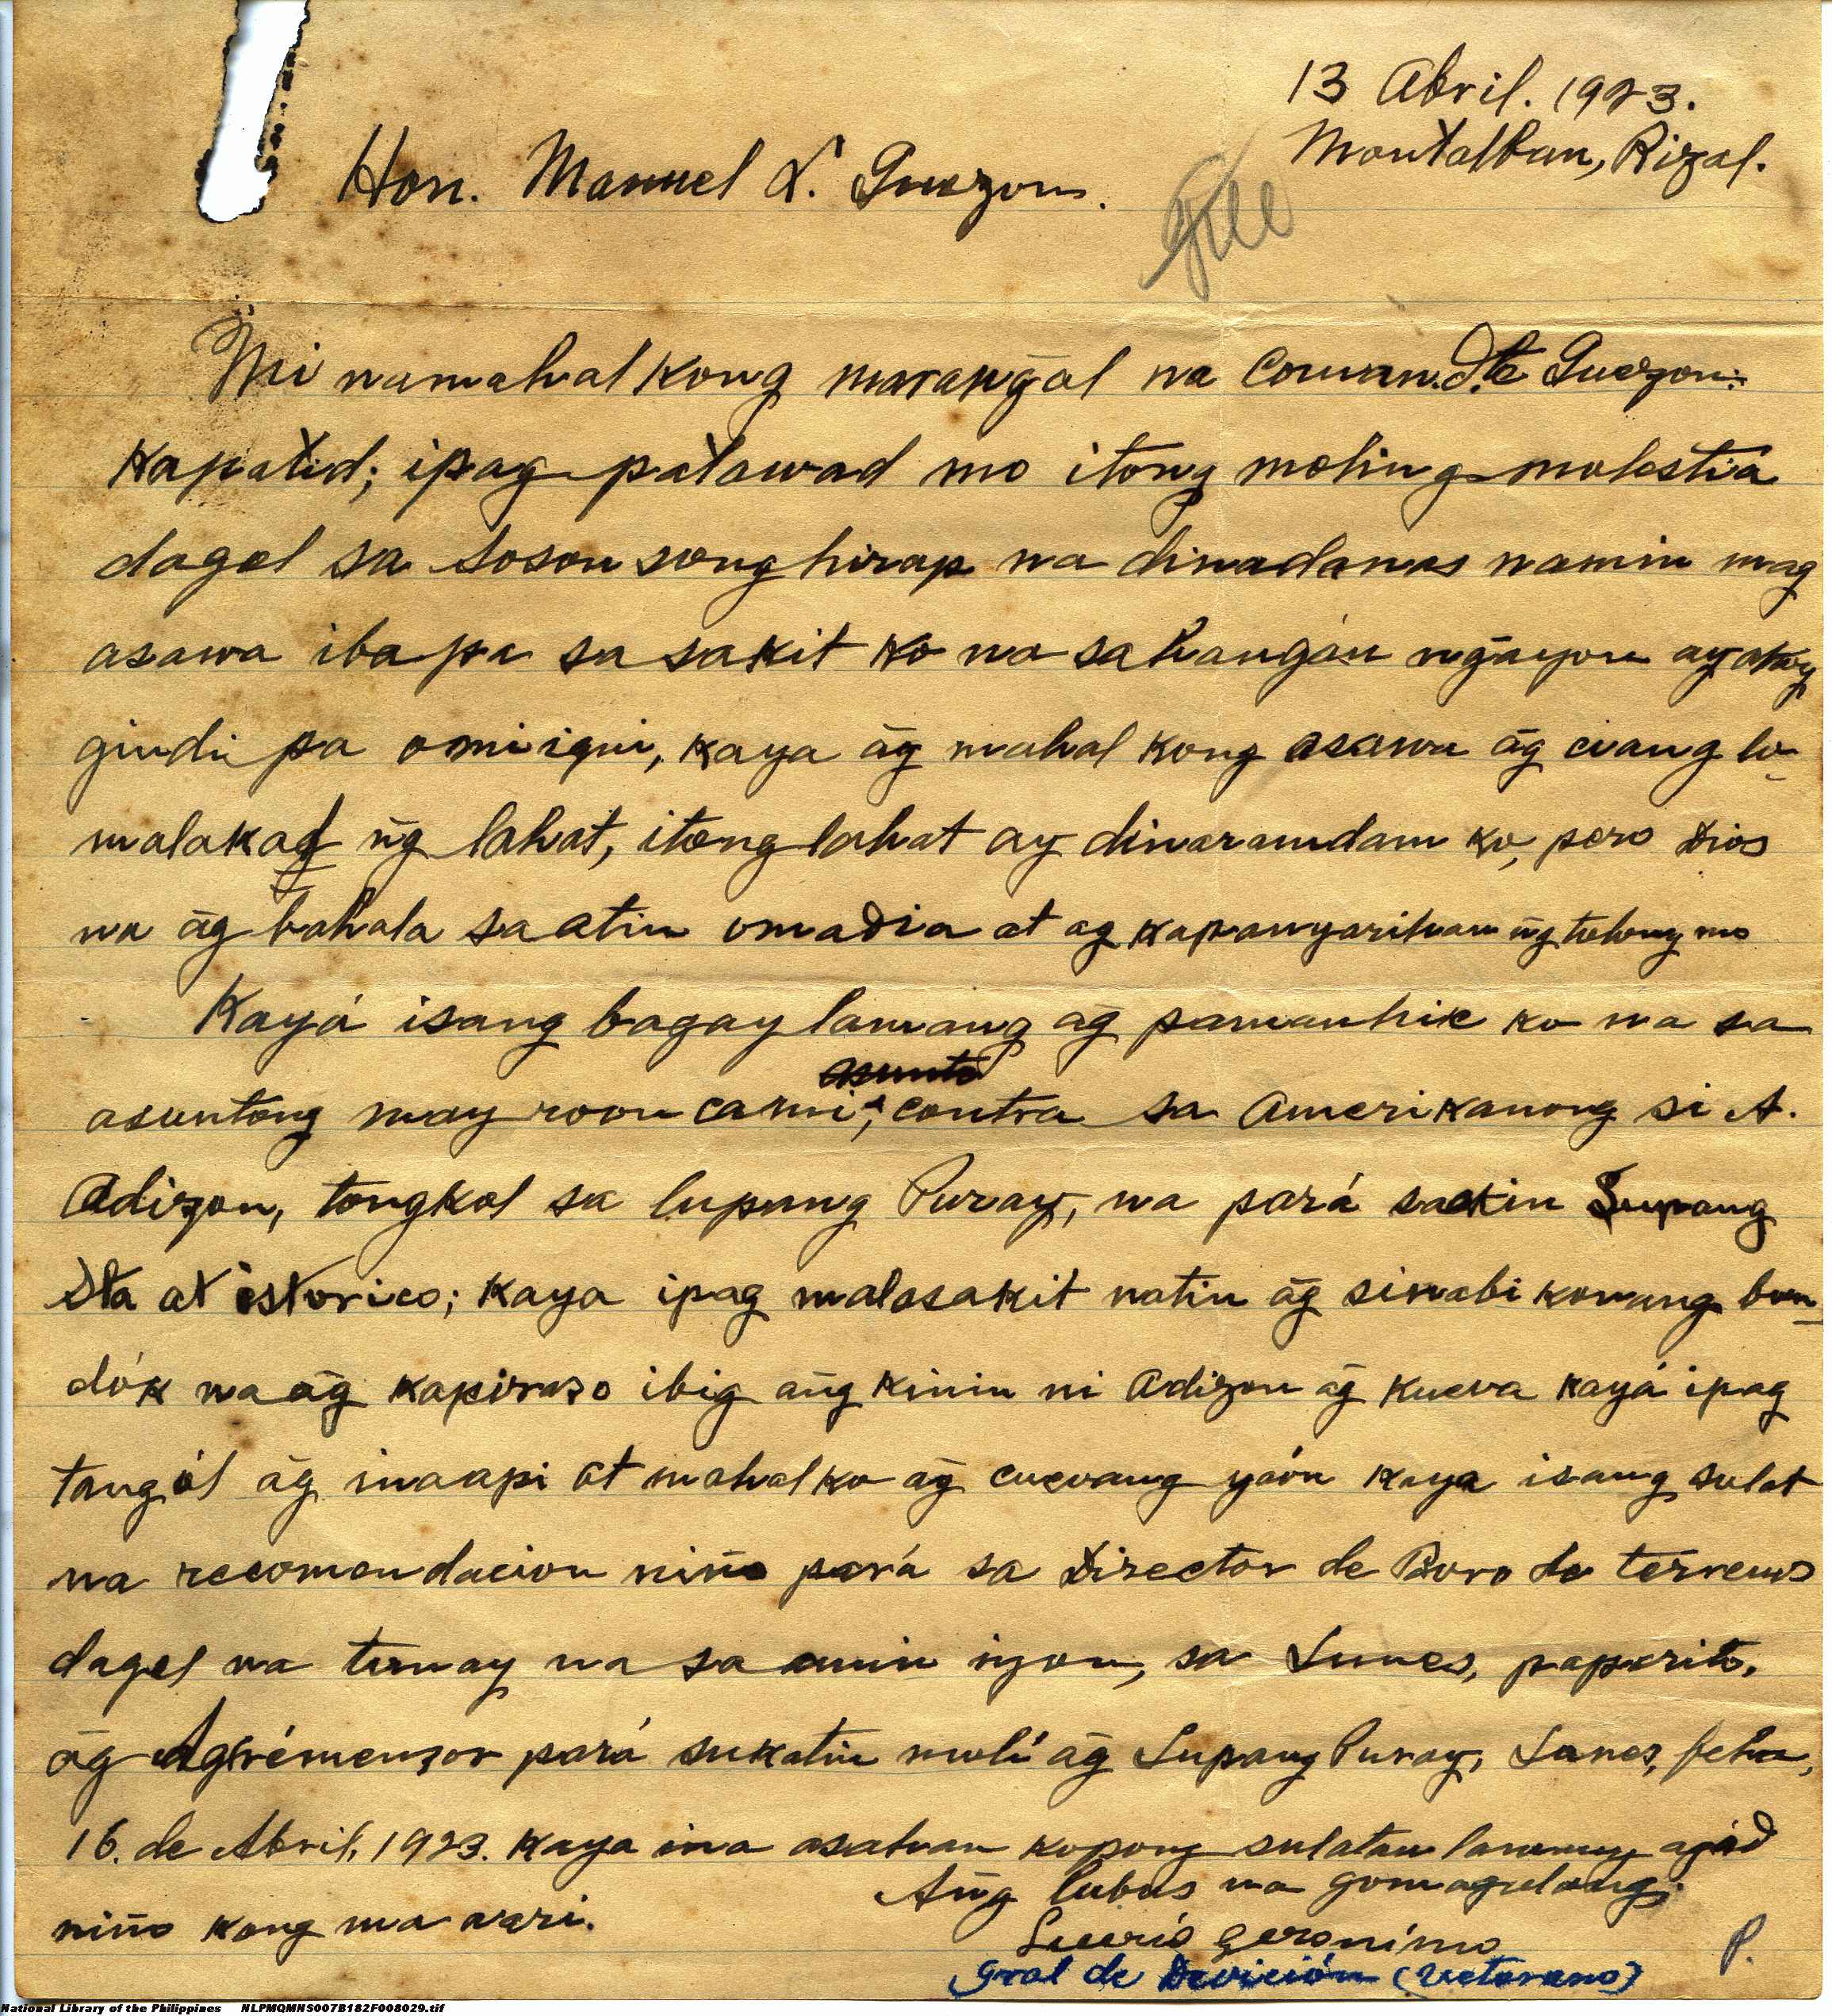 13 Abril. 1923.
Montalban, Rizal.
Hon. Manuel L. Quezon.
File
Mi namahal kong marang̃al na Coman.dte Quezon:
Kapatid; ipag patawad mo itong moling molestia
dagel sa soson song hirap na dinadanas namin mag
asawa iba pa sa sakit ko na sahangán ng̃ayon ay akoy
gindi pa omiigui, kaya ãg mahal kong asawa ãg ciang lo-
malakad ñg lahat, itong lahat ay dinaramdam ko, pero Dios
na ãg bahala sa atin omadia at ag kapangarihan ñg tolong mo
Kayá isang bagay lamang ãg pamanhik ko na sa
asuntong may roon cami, contra sa Amerikanong si A.
Adizon, tongkol sa lupang Puray, na pará saakin Lupang
Sta at istorico; kaya ipag malasakit natin ãg sinabi konang bun-
dók na ãg kapiraso ibig ang̃kinin ni Adizon ãg kueva kayá ipag
tangól ãg inaapi at mahal ko ãg cuevang yaón kaya isang sulat
na recomendacion niño pará sa Director de Buro de terrenos
dagel na tunay na sa amin iyon, sa Lunes, paparito,
ãg Agrémensor pará sukatin mulí ãg Lupang Puray, Lunes, feha,
16. de Abril, 1923. kaya ina asahan kopong sulatan lamang agád
niño kong ma aari.
Ang̃ lubus na gomagalang.
Licerio Geronimo
Gral de Devición (Veterano)
P.
National Library of the Philippines NLPMQMNS007B182F008029.tif